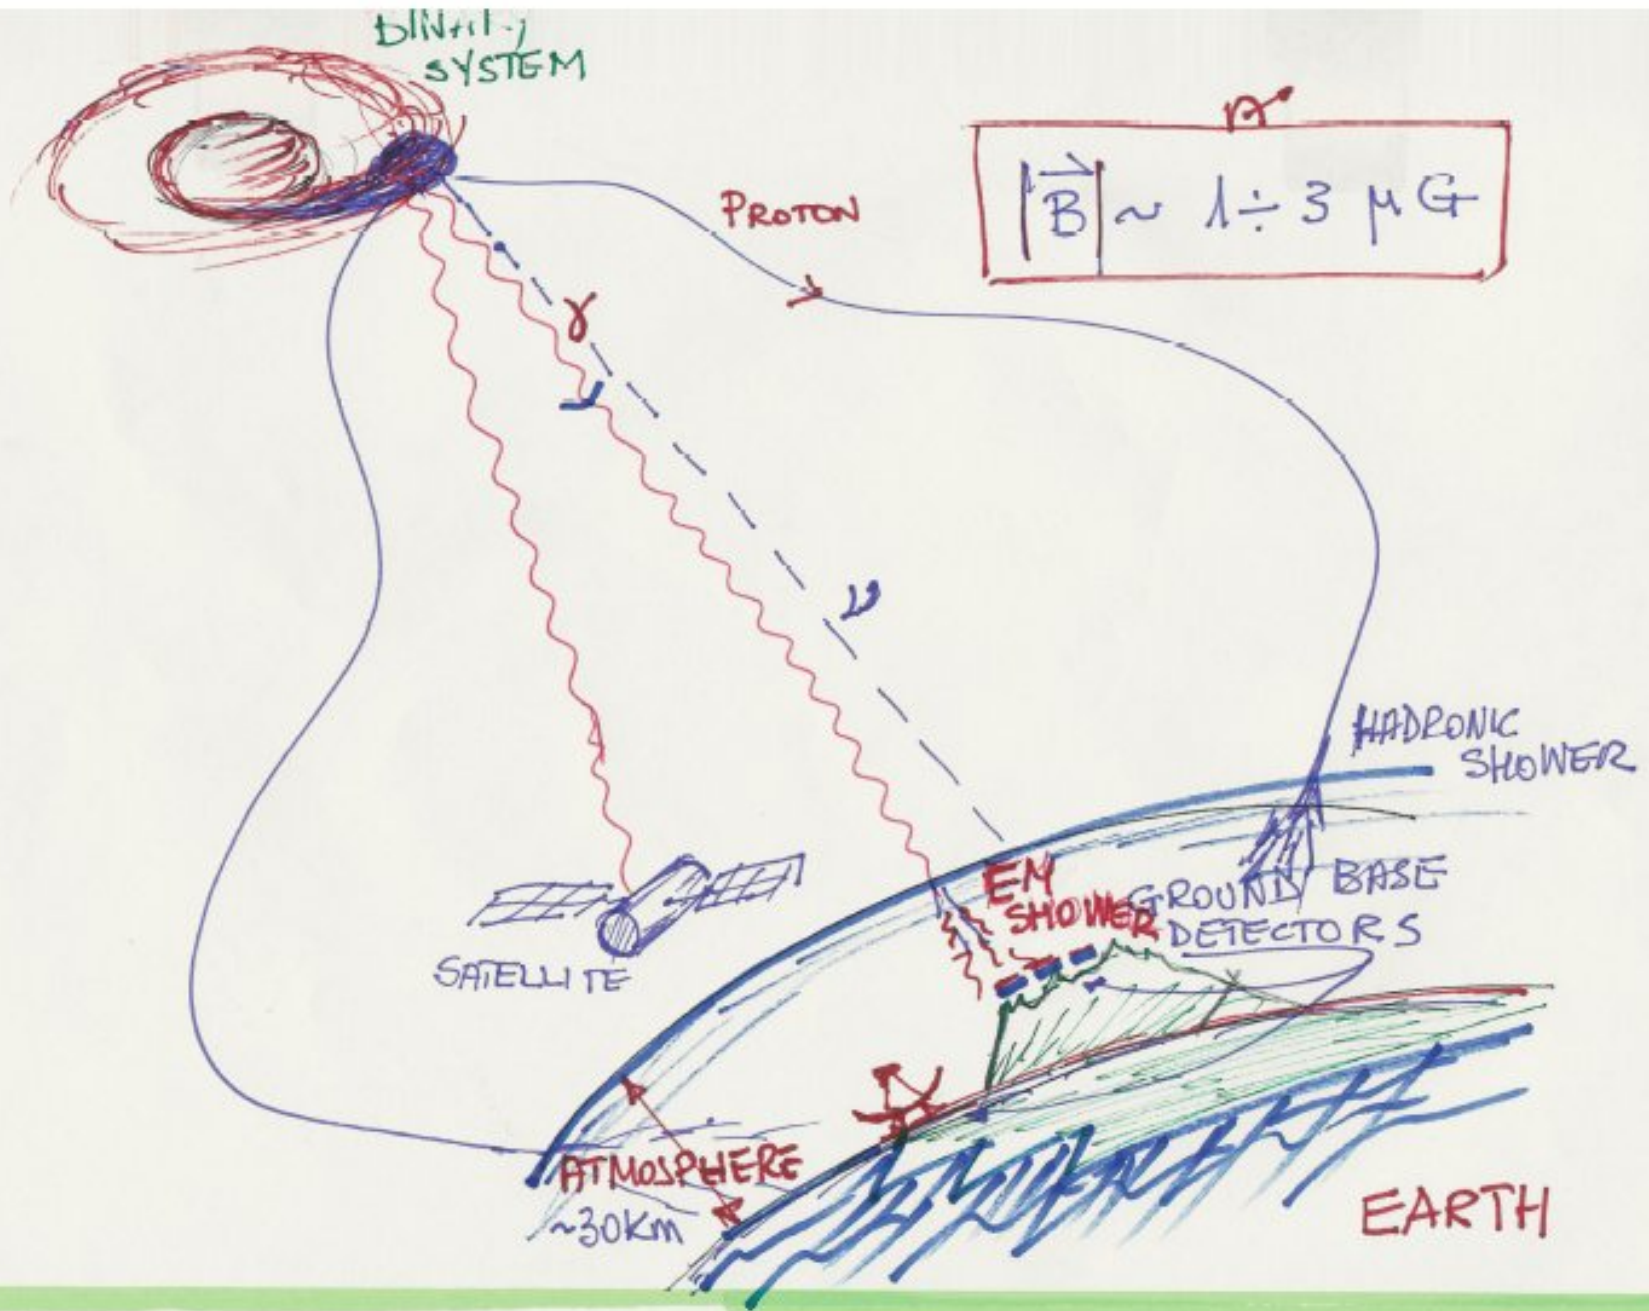 SYSTEM
|B⃗| ~ 1÷3 μG
PROTON
γ
ν
HADRONIC
SHOWER
EM
SHOWER
GROUND BASE
DETECTORS
SATELLITE
ATMOSPHERE
~30Km
EARTH